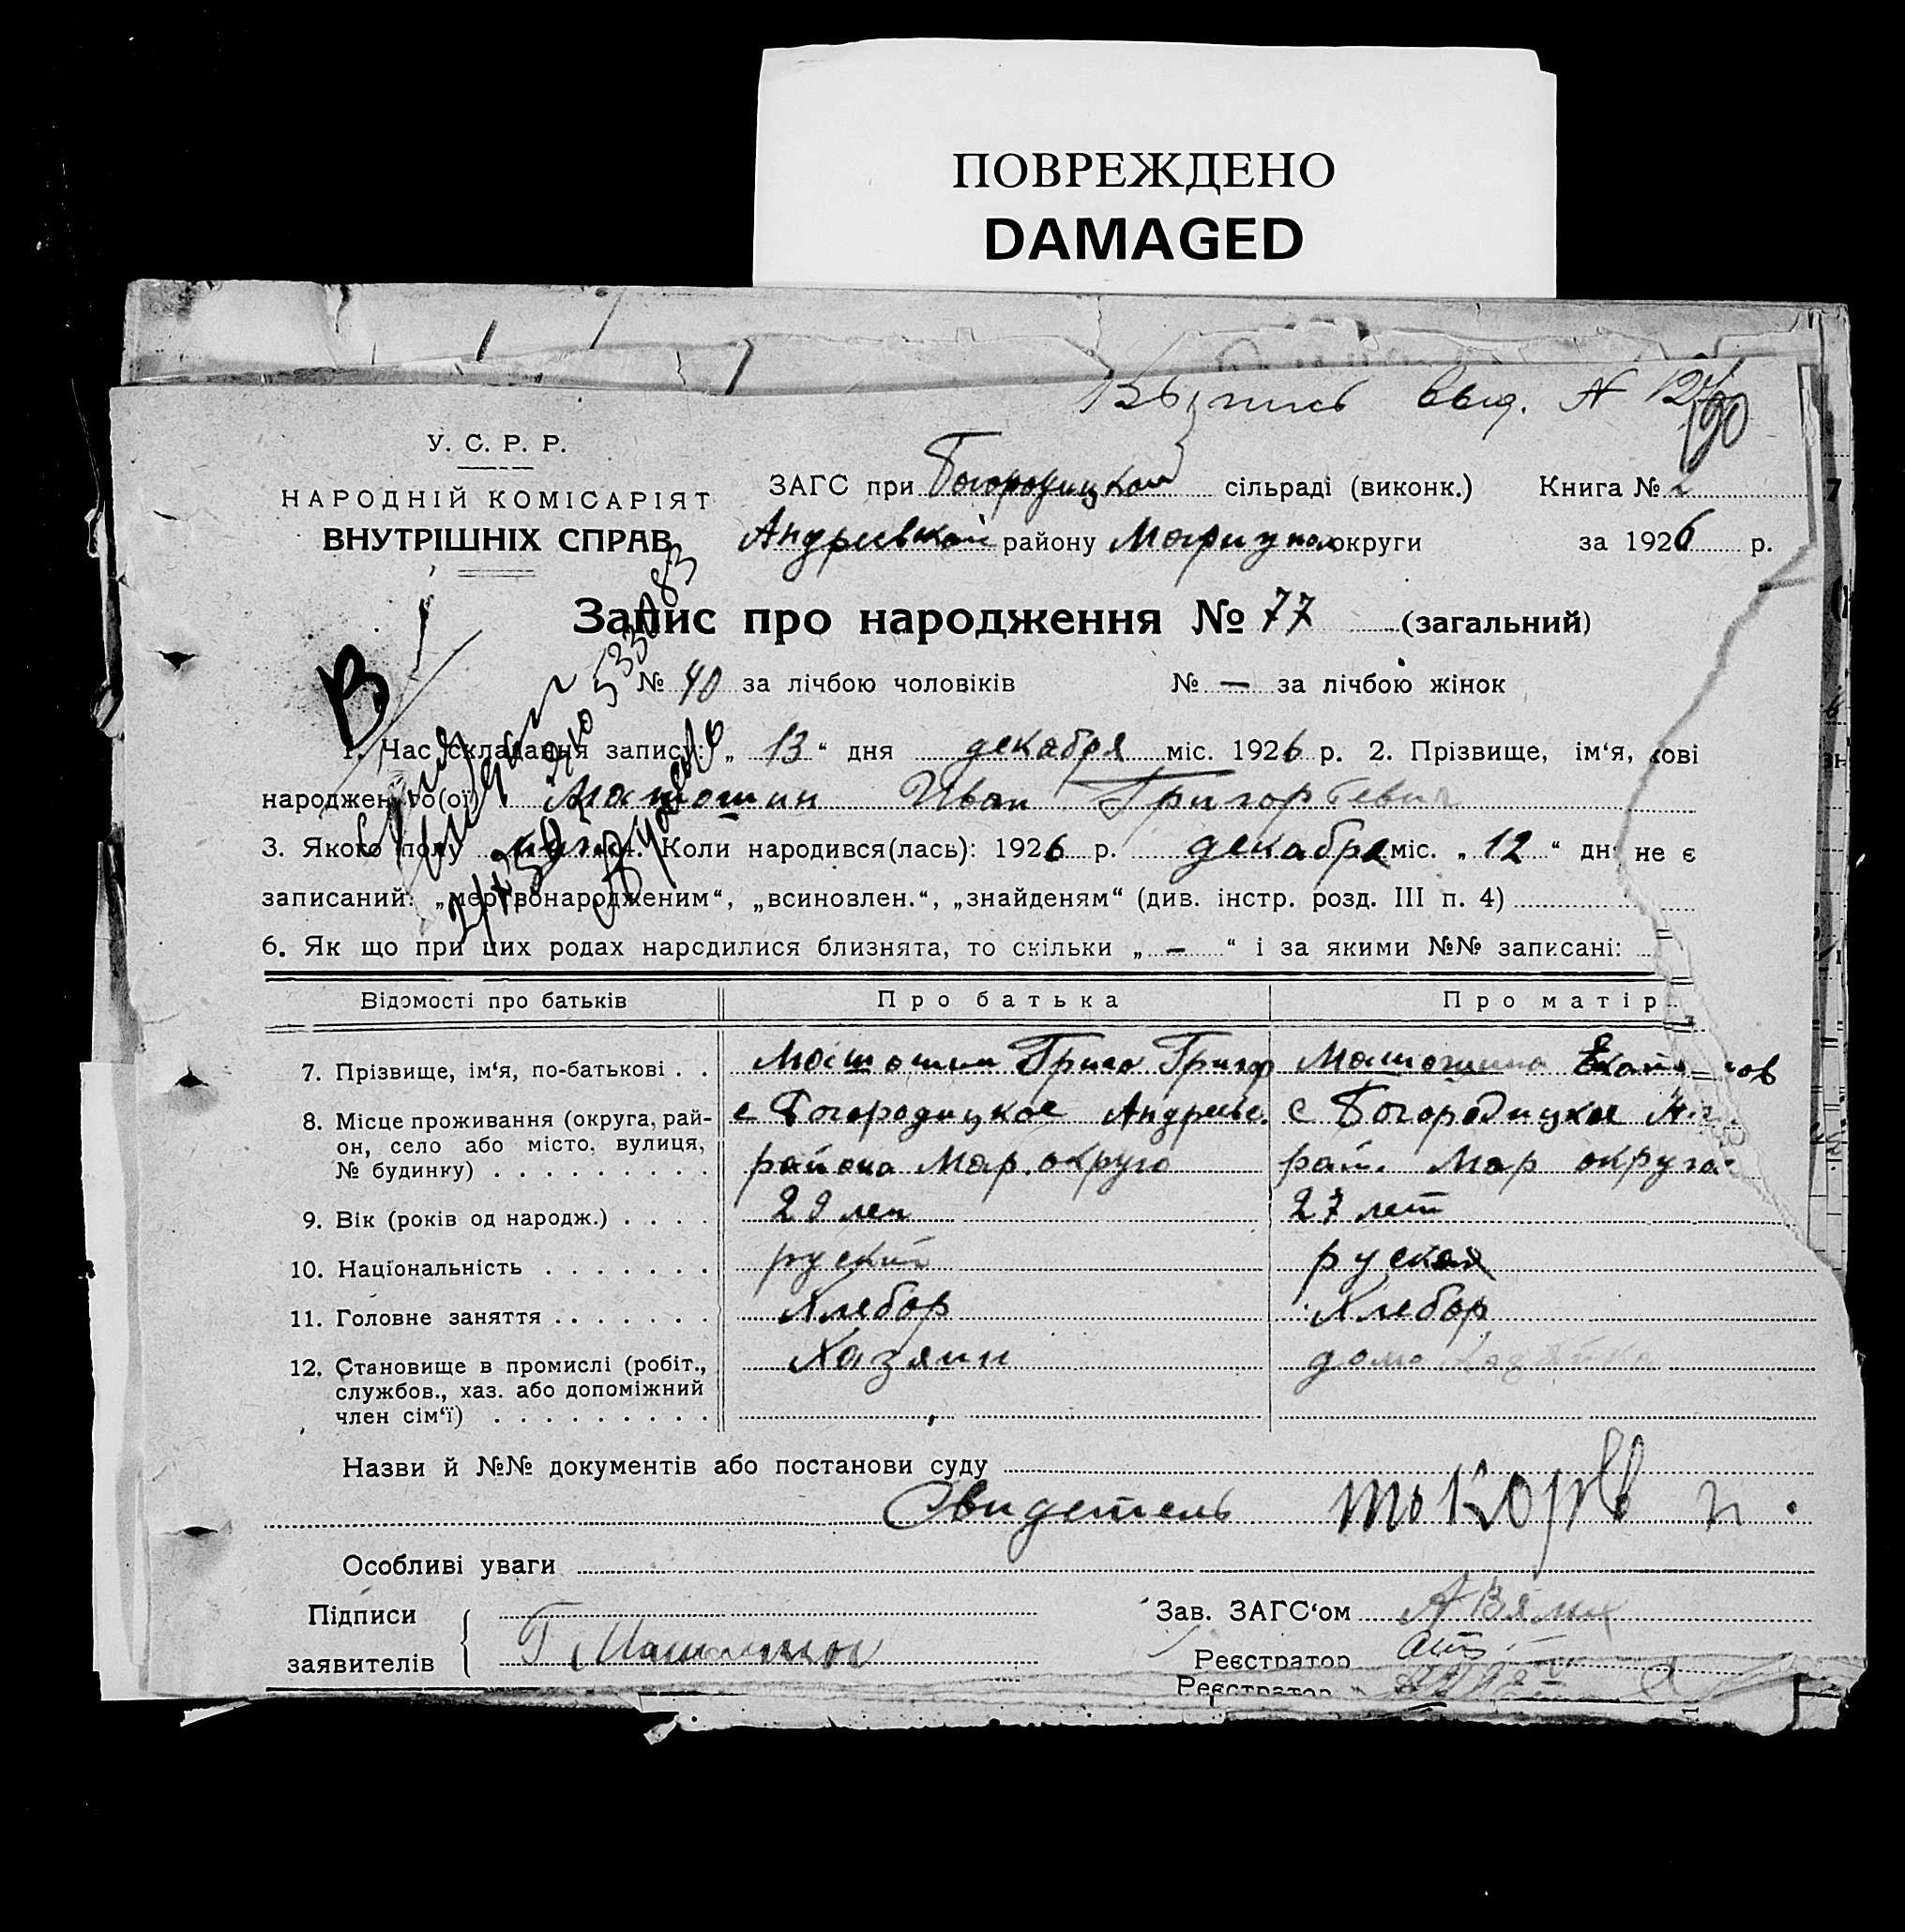 ПОВРЕЖДЕНО
DAMAGED
выд. №
190
У. С. Р. Р.
НАРОДНІЙ КОМІСАРІЯТ
ВНУТРІШНІХ СПРАВ
ЗАГС при Богородицкой сільраді (виконк.) Книга № 2
Андреевской району Мариупол округи за 1926 р.
Запис про народження № 77 (загальний)
№ 40 за лічбою чоловіків № — за лічбою жінок
В
1. Час складання запису: „ 13 “ дня декабря міс. 1926 р. 2. Прізвище, ім‘я, кові
народженого(ої) Машошин Иван Григорьевич
3. Якого полу муж. Коли народився(лась): 1926 р. декабря міс. „ 12 “ дн не є
записаний: „мертвонародженим“, „всиновлен.“, „знайденям“ (див. інстр. розд. III п. 4)
6. Як що при цих родах народилися близнята, то скільки „ — “ і за якими №№ записані:
Відомості про батьків Про батька Про матір
7. Прізвище, ім‘я, по-батькові . . Машошин Григо Григор Машошина Екат ков
8. Місце проживання (округа, рай- с Богородицкое Андреевс. с Богородицкое
он, село або місто, вулиця,
№ будинку) . . . . . . . . . района Мар. округа рай. Мар округа
9. Вік (років од народж.) . . . . 29 лет 27 лет
10. Національність . . . . . . . руский руская
11. Головне заняття . . . . . . . Хлебор Хлебор
12. Становище в промислі (робіт., Хазяин домо хазяйка
службов., хаз. або допоміжний
член сім‘ї) . . . . . . . . .
Назви й №№ документів або постанови суду
Свидетель
Особливі уваги
Підписи Зав. ЗАГС‘ом
заявителів Г Машошин Реєстратор
Реєстратор